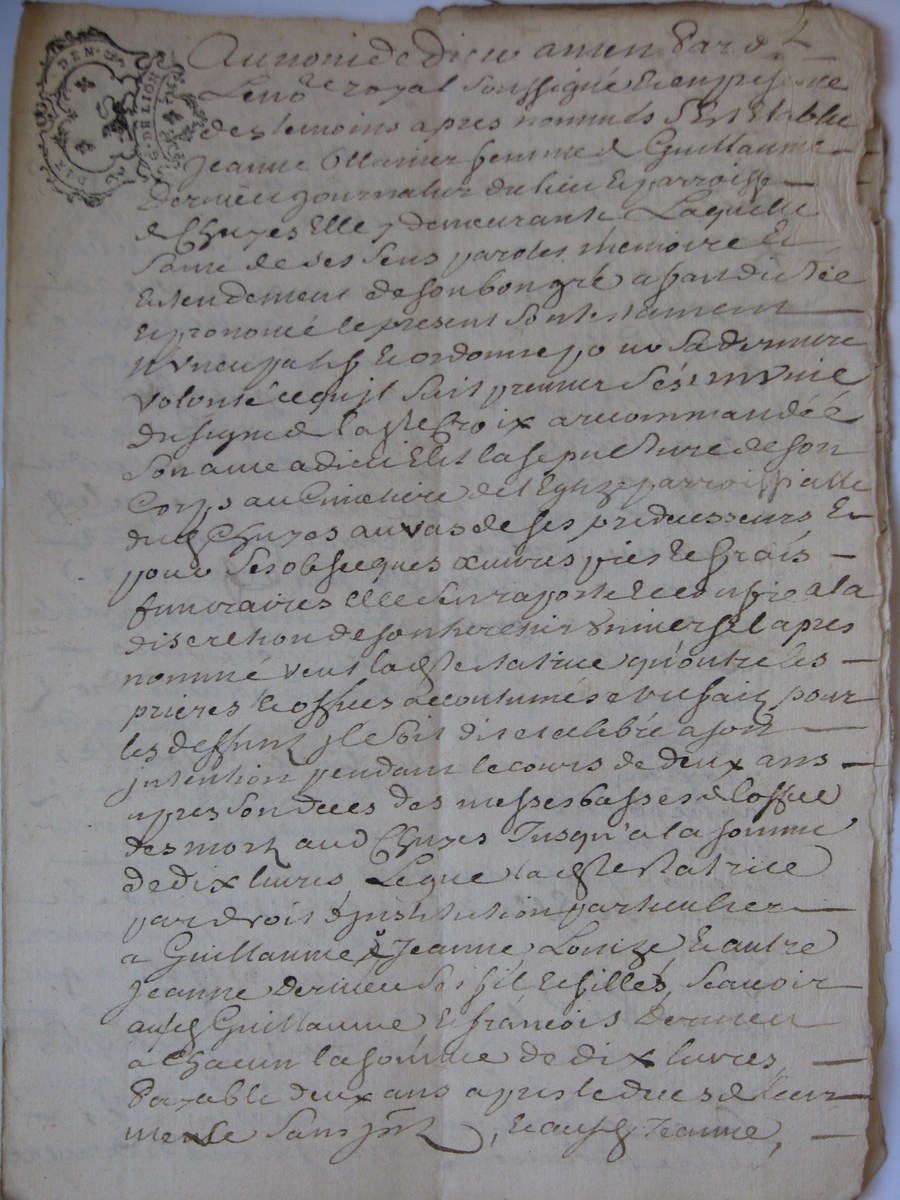 DIX DEN.
G. DE LION
Au nom de dieu amen Par dt
Le nore royal soussigné et en presence
des temoins apres nommés s'est Etablie
Jeanne Ollanier femme de Guillaume
Dernieu journalier du lieu et parroisse
de Chuzes Elle y demeurante Laquelle
saine de ses sens parolles memoire Et
Entendement de son bon gré a fait dicté
et prononcé le present son testament
nuncupatif et ordonne pour sa derniere
volonté ce quy suit premier s'est munie
du signe de la ste Croix a recommandéé
son ame a dieu Elit la sepulture de son
Corps au Cimetiere de l'Eglize parroissialle
dud Chuzes au vas de ses predecesseurs Et
pour ses obseques œuvres pies et frais
funeraires elle s'en raporte et confie a la
discretion de son heretier universel apres
nommé veut lad testatrice qu'outre les
prieres et offices accoutumés etre faits pour
les deffunts jl soit dit et celebré a son
jntention pendant le cours de deux ans
apres son deces des messes basses de l'office
des morts aud Chuzes Jusqu'a la somme
de dix livres, Legue lad testatrice
par droit d'jnstitution particuliere
a Guillaume Jeanne, Louize et autre
jeanne Dernieu ses fil et filles, scavoir
ausd Guillaume et françois Dernieu
a Chacun la somme de dix livres,
Payable deux ans apres le deces de leur
mere sans jnt, et ausd Jeanne,